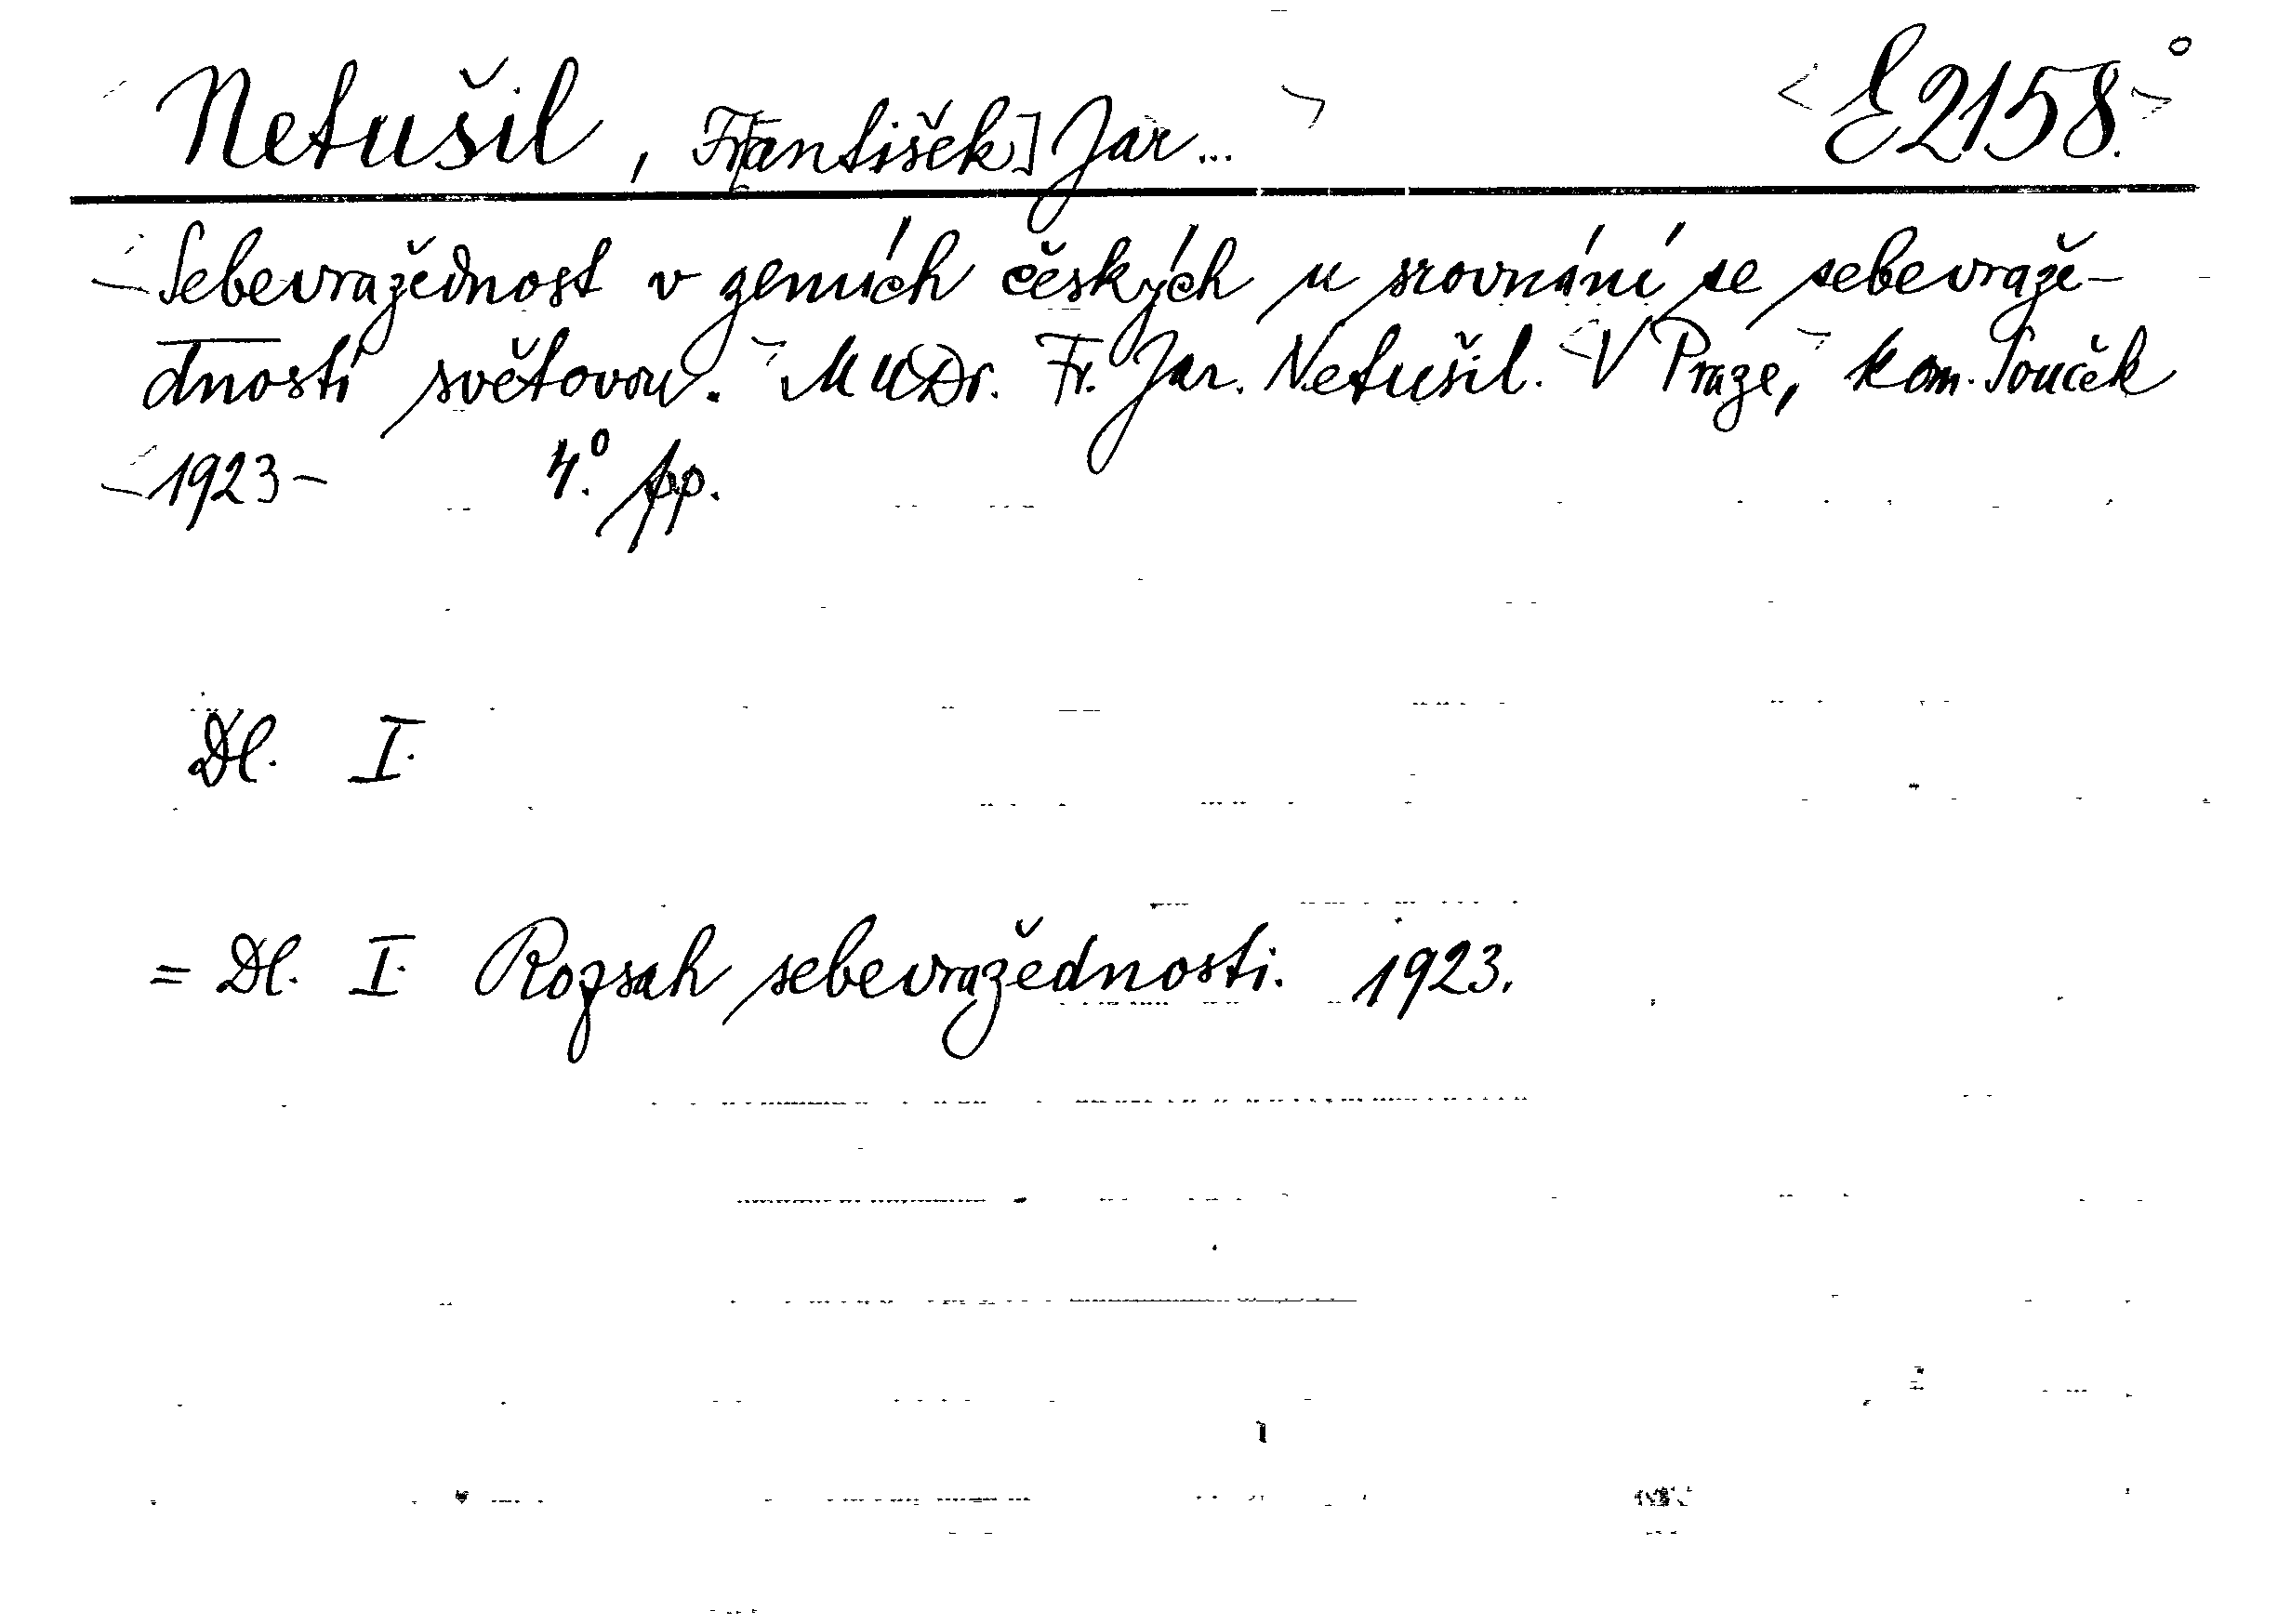 Netušil, Fr[antišek] Jar... E 2158.°
Sebevražednost v zemích českých u srovnání se sebevraže-
dností světovou. MUDr. Fr. Jar. Netušil. V Praze, kom. Souček
1923- 4°. pp.
Dl. I.
= Dl. I. Rozsah sebevražednosti. 1923.